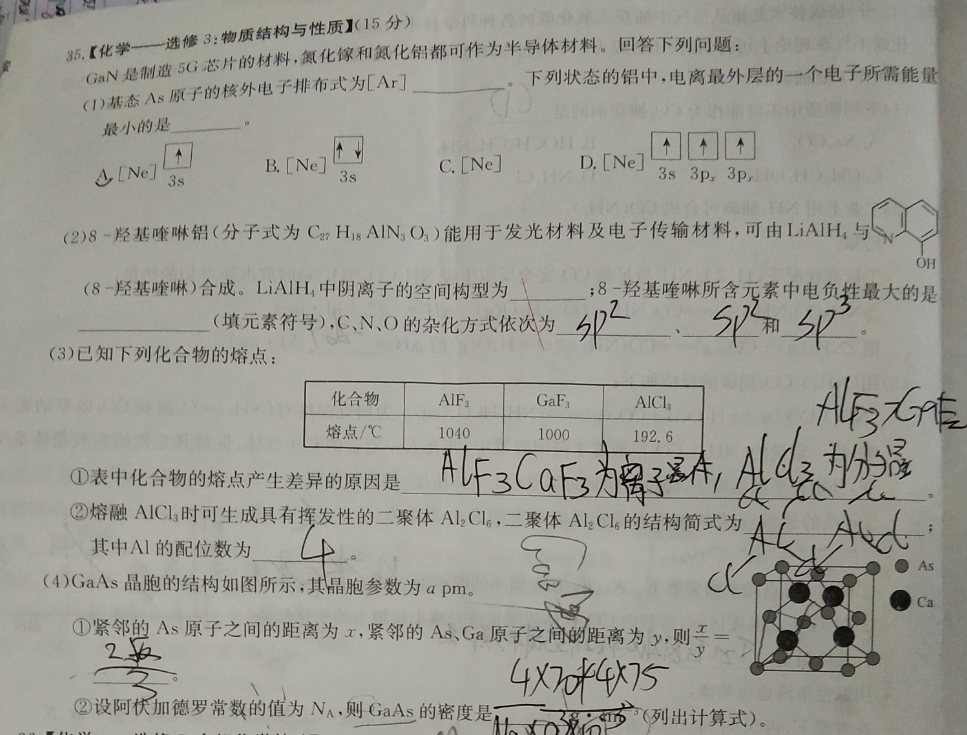 35.【化学——选修3:物质结构与性质】(15分)
GaN是制造5G芯片的材料,氮化镓和氮化铝都可作为半导体材料。回答下列问题:
(1)基态As原子的核外电子排布式为[Ar]________。下列状态的铝中,电离最外层的一个电子所需能量
最小的是________。
A.[Ne] ↑ 3s B.[Ne] ↑↓ 3s C.[Ne] D.[Ne] ↑ ↑ ↑ 3s 3pₓ 3p
(2)8-羟基喹啉铝(分子式为C₂₇H₁₈AlN₃O₃)能用于发光材料及电子传输材料,可由LiAlH₄与 N OH
(8-羟基喹啉)合成。LiAlH₄中阴离子的空间构型为________;8-羟基喹啉所含元素中电负性最大的是
________(填元素符号),C、N、O的杂化方式依次为 sp² 、 sp² 和 sp³ 。
(3)已知下列化合物的熔点:
化合物 AlF₃ GaF₃ AlCl₃
熔点/℃ 1040 1000 192.6
AlF₃
①表中化合物的熔点产生差异的原因是 AlF₃ CaF₃为离子晶体, AlCl₃为分子晶 。
②熔融AlCl₃时可生成具有挥发性的二聚体Al₂Cl₆,二聚体Al₂Cl₆的结构简式为________;
其中Al的配位数为 4 。
(4)GaAs晶胞的结构如图所示,其晶胞参数为a pm。
As
Ca
①紧邻的As原子之间的距离为x,紧邻的As、Ga原子之间的距离为y,则x/y=
2√6/3 。
②设阿伏加德罗常数的值为Nₐ,则GaAs的密度是 4×70+4×75 (列出计算式)。